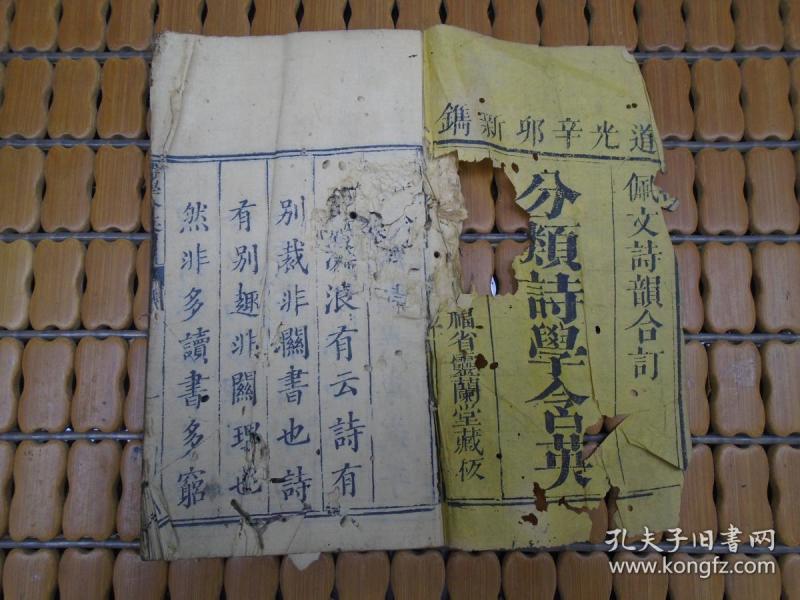 道光辛卯新鐫
佩文詩韻合訂
分類詩學含英
福省靈蘭堂藏板
浪有云詩有
別裁非關書也詩
有別趣非關理也
然非多讀書多窮
孔夫子旧书网
www.kongfz.com